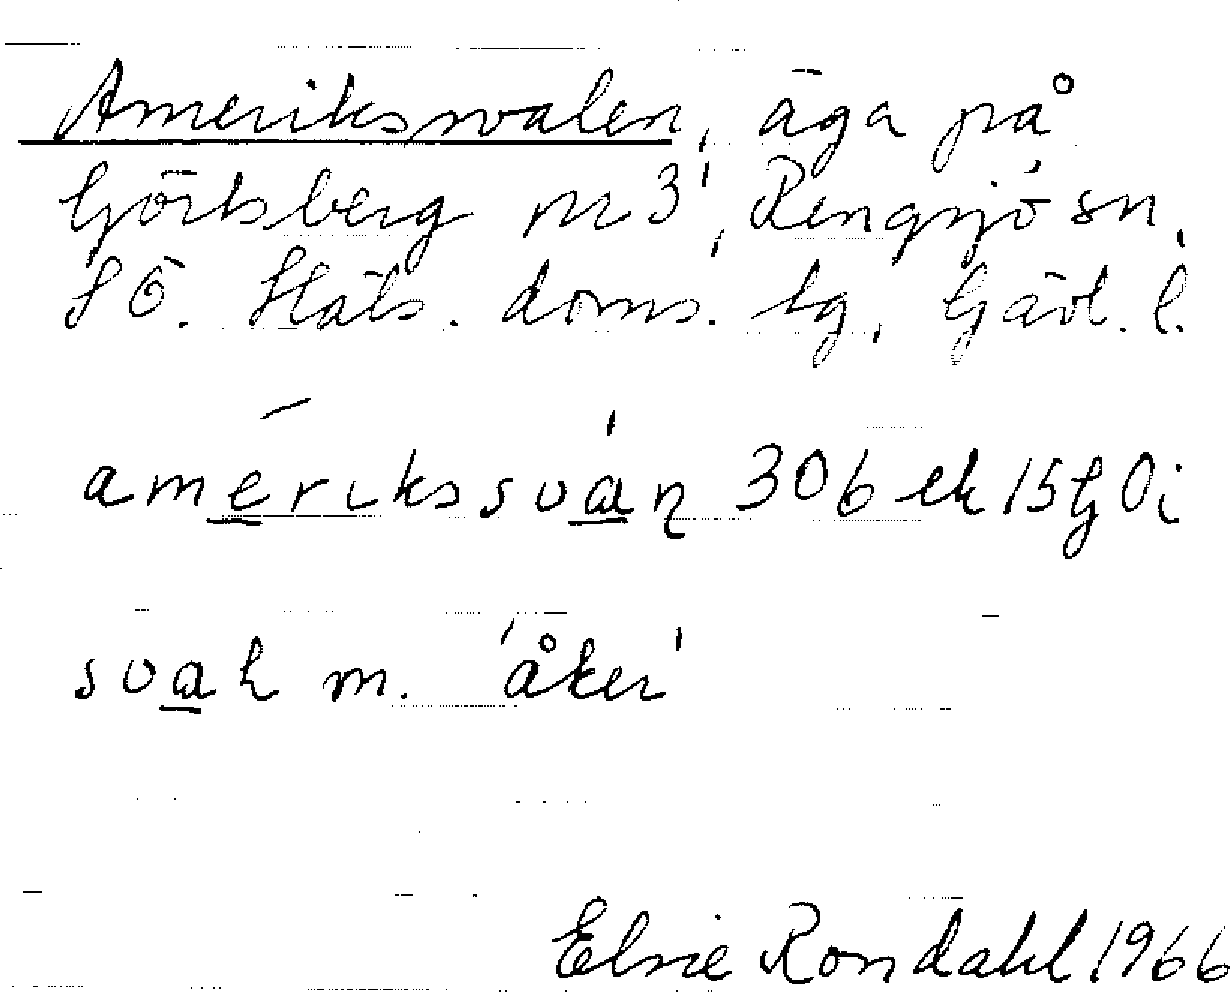 Amerikssvalen, äga på
Görtsberg nr 3¹, Rengsjö sn,
SÖ. Häls. doms. tg, Gävl. l.
amerikssvaɳ 306 ek 15 G Oi
svaɫ m. 'åker'
Elsie Rondahl 1966